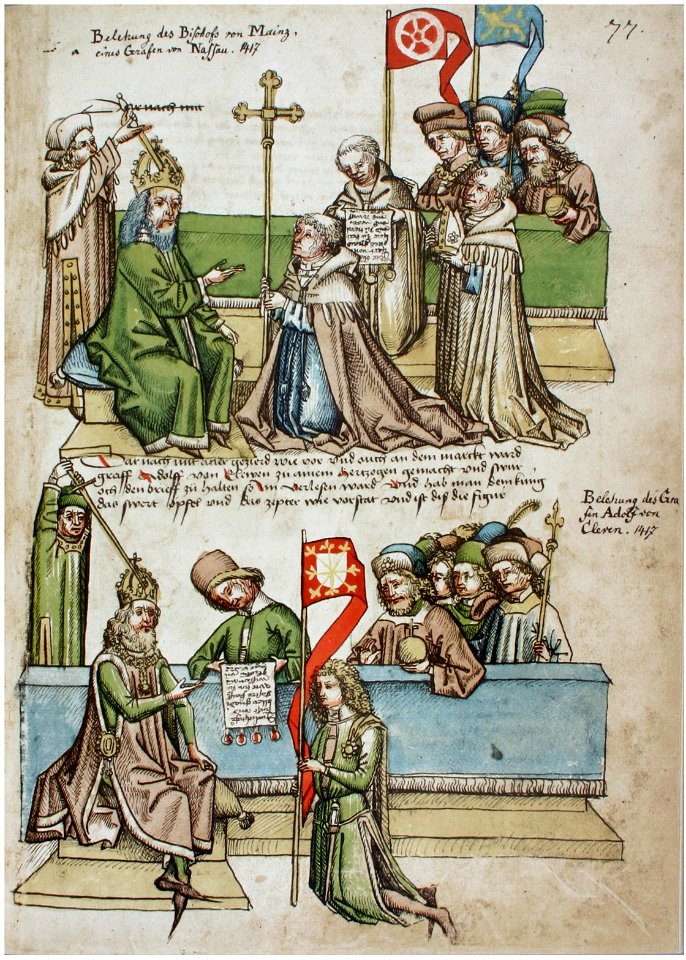 77.
Belehung des Bischofs von Mainz,
eines Grafen von Nassau. 1417
dar nach mit
Dar nach mit aller gezierd wie vor vnd ouch an dem marckt ward
graff Adolff von Cleven zu ainem hertzogen gemacht vnd swur
och den brieff zu halten so im verlesen ward vnd hab man den kung
das swort öpffel vnd das zepter wie vorstat vnd ist diß die figur
Belehung des Gra
fen Adolf von
Cleven. 1417